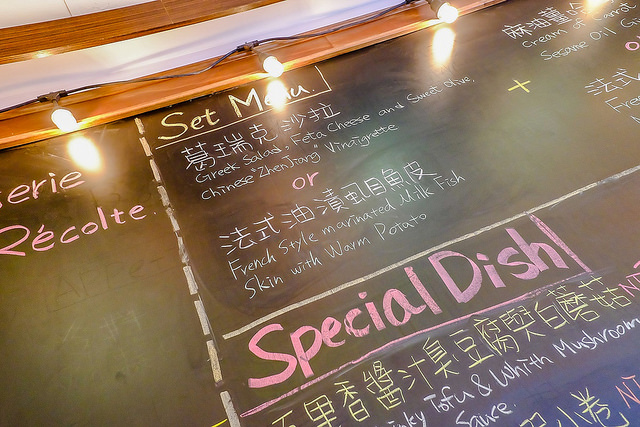 erie
Récolte.
Set Menu.
葛瑞克沙拉
Greek Salad, Feta Cheese and Sweet Olive,
Chinese "ZhenJiang" Vinaigrette
or
法式油漬虱目魚皮
French Style marinated Milk Fish
Skin with Warm Potato
+
麻油薑
Cream of Carrot
Sesame Oil G
o
法式
Fre
Special Dish!
五里香醬汁臭豆腐與白蘑菇 NT
inky Tofu & Whith Mushroom
Sauce.
小卷 NT